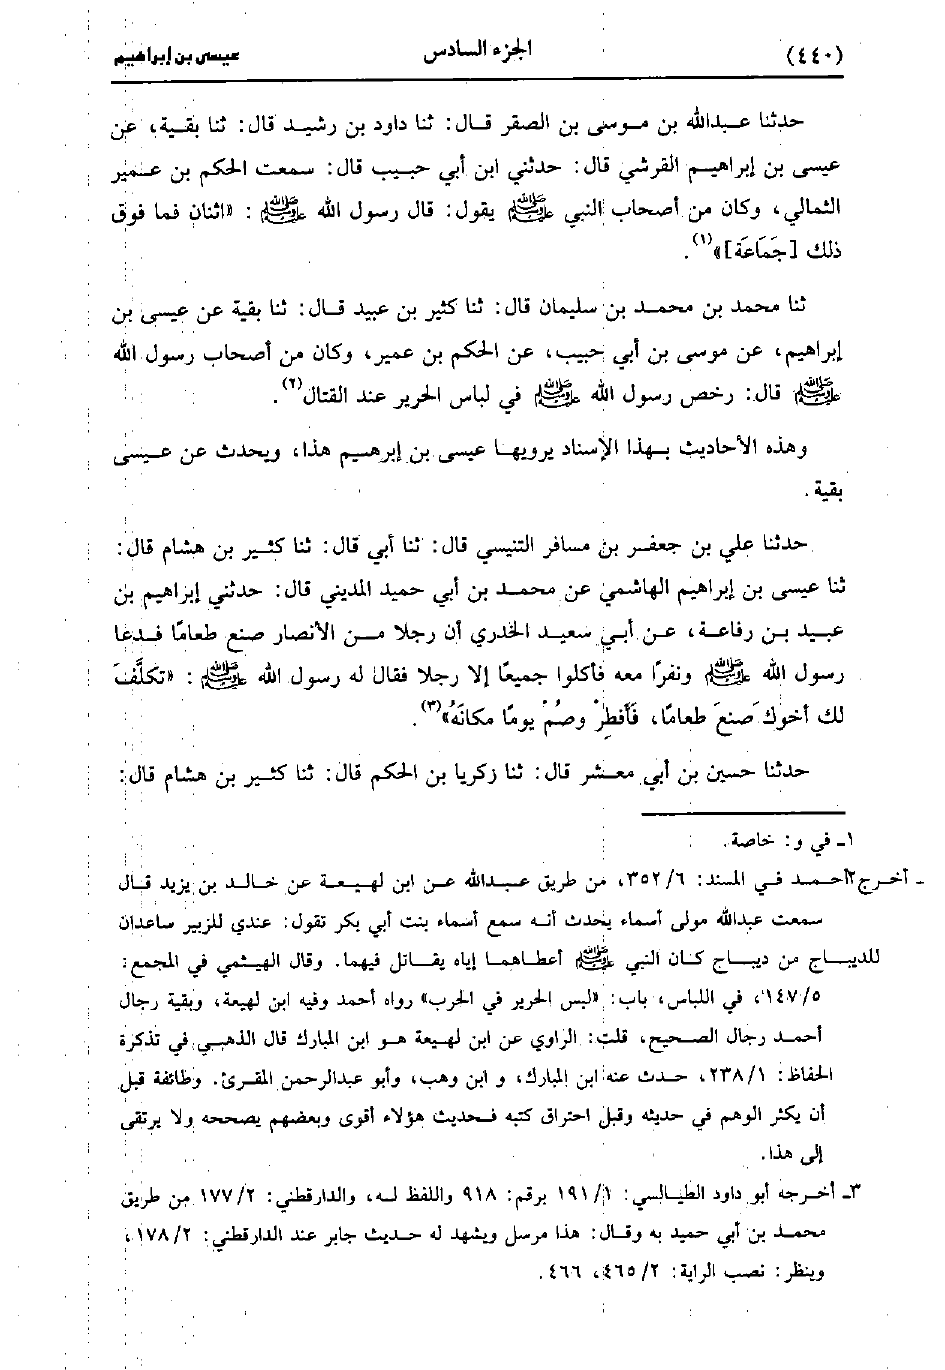 (٤٤٠) الجزء السادس عيسى بن إبراهيم
حدثنا عبدالله بن موسى بن الصقر قال: ثنا داود بن رشيد قال: ثنا بقية، عن
عيسى بن إبراهيم القرشي قال: حدثني ابن أبي حبيب قال: سمعت الحكم بن عمير
الثمالي، وكان من أصحاب النبي ﷺ يقول: قال رسول الله ﷺ : «اثنان فما فوق
ذلك [جَمَاعَة]»(١).
ثنا محمد بن محمد بن سليمان قال: ثنا كثير بن عبيد قال: ثنا بقية عن عيسى بن
إبراهيم، عن موسى بن أبي حبيب، عن الحكم بن عمير، وكان من أصحاب رسول الله
ﷺ قال: رخص رسول الله ﷺ في لباس الحرير عند القتال(٢).
وهذه الأحاديث بهذا الإسناد يرويها عيسى بن إبرهيم هذا، ويحدث عن عيسى
بقية .
حدثنا علي بن جعفر بن مسافر التنيسي قال: ثنا أبي قال: ثنا كثير بن هشام قال:
ثنا عيسى بن إبراهيم الهاشمي عن محمد بن أبي حميد المديني قال: حدثني إبراهيم بن
عبيد بن رفاعة، عن أبي سعيد الخدري أن رجلا من الأنصار صنع طعامًا فدعا
رسول الله ﷺ ونفرًا معه فأكلوا جميعًا إلا رجلا فقال له رسول الله ﷺ : «تكلَّفَ
لك أخوك صنعَ طعامًا، فَأَفطِرْ وصُمْ يومًا مكانَهُ»(٣).
حدثنا حسين بن أبي معشر قال: ثنا زكريا بن الحكم قال: ثنا كثير بن هشام قال:
١ـ في و: خاصة.
٢ـ أخرج أحمد في المسند: ٣٥٢/٦، من طريق عبدالله عن ابن لهيعة عن خالد بن يزيد قال
سمعت عبدالله مولى أسماء يحدث أنه سمع أسماء بنت أبي بكر تقول: عندي للزبير ساعدان
للديباج من ديباج كان النبي ﷺ أعطاهما إياه يقاتل فيهما. وقال الهيثمي في المجمع:
١٤٧/٥، في اللباس، باب: «لبس الحرير في الحرب» رواه أحمد وفيه ابن لهيعة، وبقية رجال
أحمد رجال الصحيح، قلت: الراوي عن ابن لهيعة هو ابن المبارك قال الذهبي في تذكرة
الحفاظ: ٢٣٨/١، حدث عنه ابن المبارك، و ابن وهب، وأبو عبدالرحمن المقرئ. وطائفة قبل
أن يكثر الوهم في حديثه وقبل احتراق كتبه فحديث هؤلاء أقوى وبعضهم يصححه ولا يرتقى
إلى هذا.
٣ـ أخرجه أبو داود الطيالسي: ١٩١/١ برقم: ٩١٨ واللفظ له، والدارقطني: ١٧٧/٢ من طريق
محمد بن أبي حميد به وقال: هذا مرسل ويشهد له حديث جابر عند الدارقطني: ١٧٨/٢،
وينظر: نصب الراية: ٤٦٥/٢، ٤٦٦.